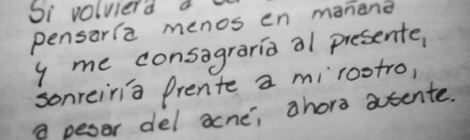 Si volviera a
pensaría menos en mañana
y me consagraría al presente,
sonreiría frente a mi rostro,
a pesar del acné, ahora ausente.